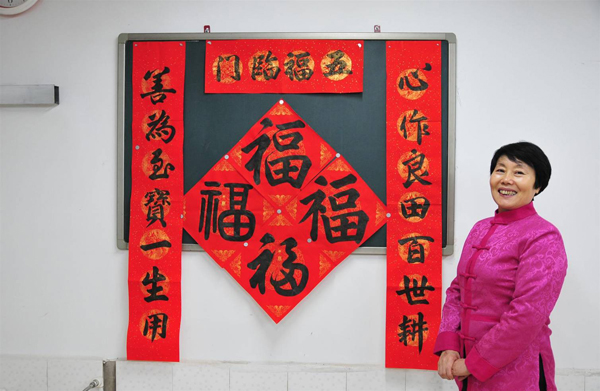 五福臨門
心作良田百世耕
善為至寶一生用
福
福
福
福